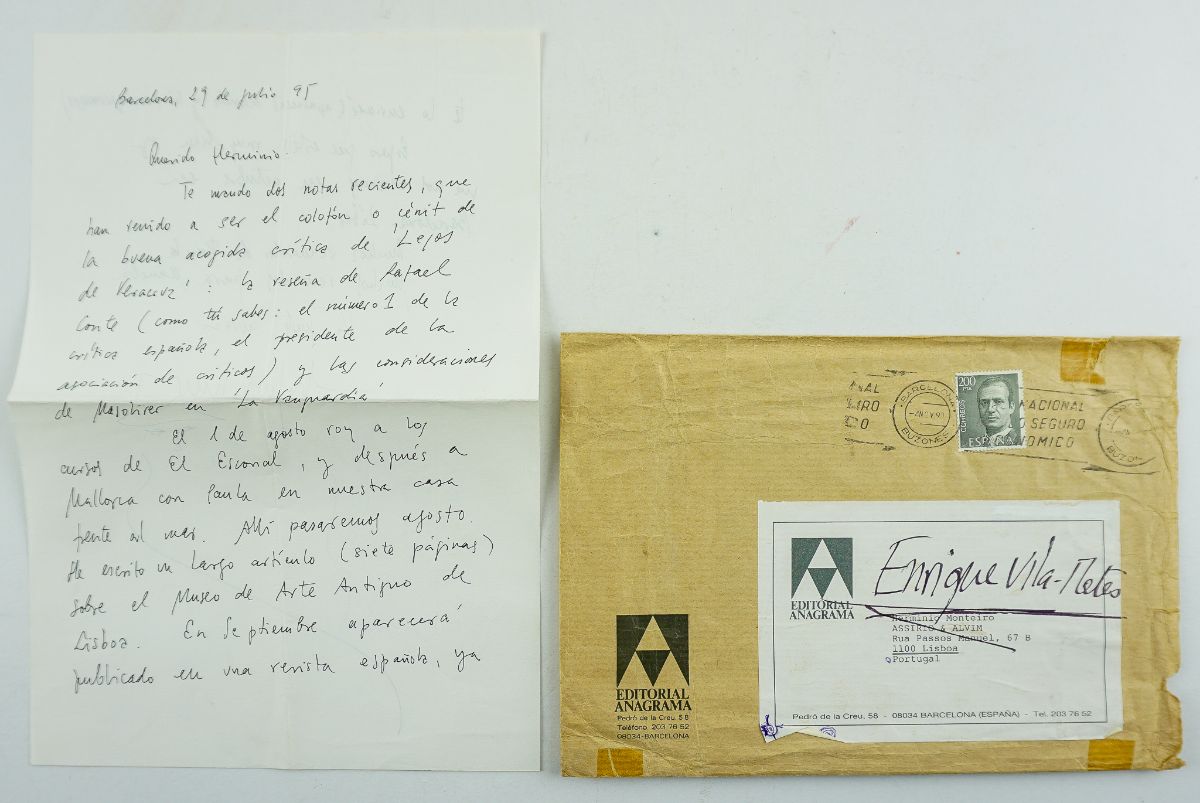 Barcelona, 29 de julio 95
Querido Herminio.
Te mando dos notas recientes, que
han venido a ser el colofón o cénit de
la buena acogida crítica de 'Lejos
de Veracruz': la reseña de Rafael
Conte (como tú sabes: el número 1 de la
crítica española, el presidente de la
asociación de críticos) y las consideraciones
de Masoliver en 'La Vanguardia'
El 1 de agosto voy a los
cursos de El Escorial, y después a
Mallorca con Paula en nuestra casa
frente al mar. Allí pasaremos agosto.
He escrito un largo artículo (siete páginas)
sobre el Museo de Arte Antiguo de
Lisboa. En Septiembre aparecerá
publicado en una revista española, ya
BARCELONA
BUZONES
200 PTA
CORREOS
ESPAÑA
NACIONAL
SEGURO
BUZON
EDITORIAL
ANAGRAMA
Enrique Vila-Matas
Herminio Monteiro
ASSIRIO & ALVIM
Rua Passos Manuel, 67 B
1100 Lisboa
Portugal
Pedró de la Creu, 58 - 08034 BARCELONA (ESPAÑA) - Tel. 203 76 52
EDITORIAL
ANAGRAMA
Pedró de la Creu, 58
Teléfono 203 76 52
08034-BARCELONA